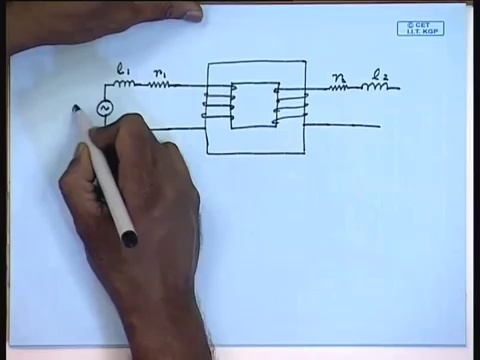 © CET
I.I.T. KGP
l₁ r₁ r₂ l₂